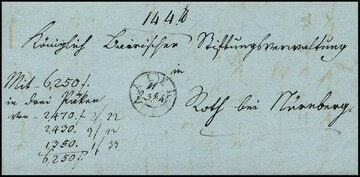 144
Königlich Bairischer Stiftungsverwaltung
in
Roth bei Nürnberg.
Mit 6,250 f.
in drei Päken
von 2470.
2430.
1350.
6,250 f.